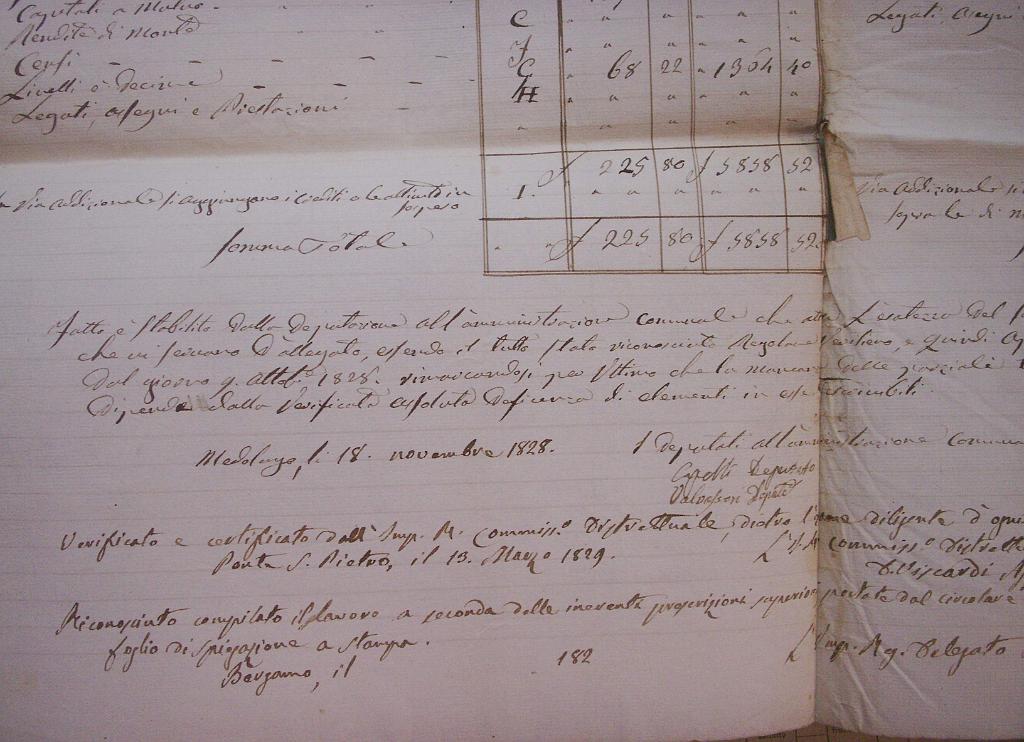 Capitali a Mutuo
Legati, Assegni
Rendite di Monte
Censi C " 68 22 " 1364 40
Livelli e Decime H
Legati, Assegni e Prestazioni
f 225 80 f 5858 52
In via addizionale si aggiungono i Crediti e le attività in I.
sospeso
Via addizionale si
Somma Totale f 225 80 f 5858 52
Fatto e stabilito dalla Deputazione all'amministrazione comunale che L'esatezza del
che vi servano d'allegato, essendo il tutto stato riconosciuto Regolare Veritiero, e quindi
Dal giorno 9. Ottob. 1828. rimarcandosi per ultimo che la mancanza delle parziali
Dipende dalla verificata assoluta deficienza di elementi in esse
Medolago, li 18. novembre 1828. I Deputati all'amministrazione Comuna
Deputato
Valsesseri Deputato
Verificato e certificato dall'Imp. R. Commiss.o Distrettuale, dietro l'esame diligente d'ogni
Ponte S. Pietro, il 13. Marzo 1829. L'I. R. Commiss.o Distrett
Viscardi
Riconosciuto compilato il lavoro a seconda delle inerenti prescrizioni superiori portate dal circolare
foglio di spiegazione a stampa.
Bergamo, il 182 L'Imp. Reg. Delegato